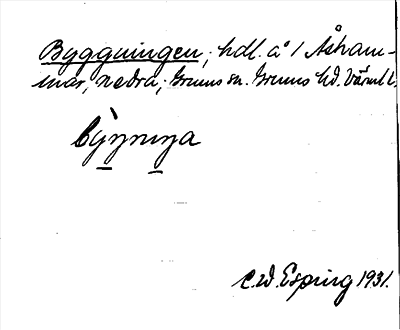 Byggningen, hdl. å 1 Åsham-
mar, nedra, Grums sn. Grums hd. Värml.
by̆ŋniŋa
C.W. Esping 1931.